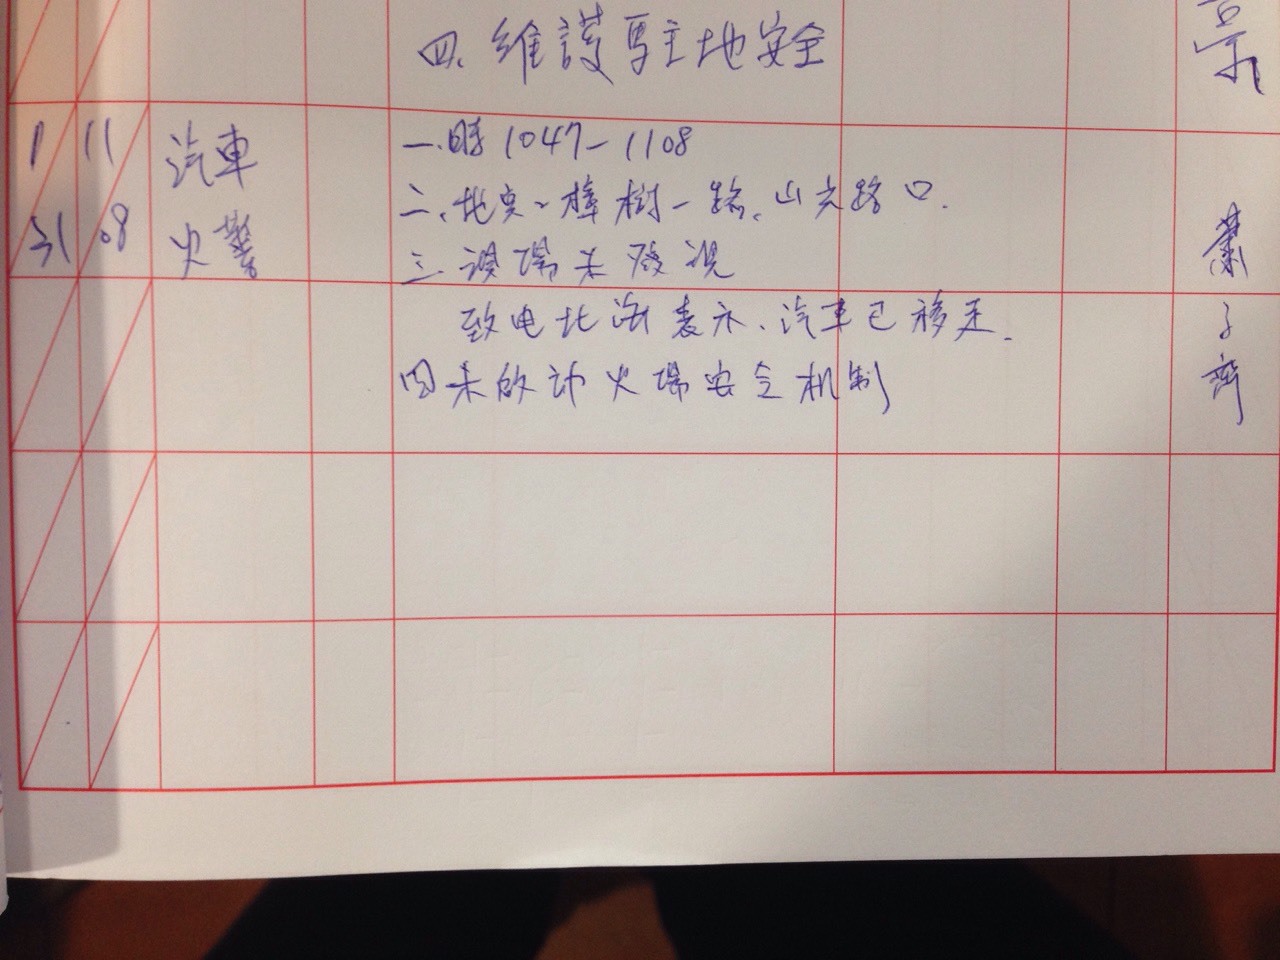 四、維護駐地安全
1/31
11:08
汽車
火警
一.時1047-1108
二、地点、樟樹一路、山光路口.
三、現場未發現
致电北海表示、汽車已移走.
四未啟动火場安全机制
蕭子齊